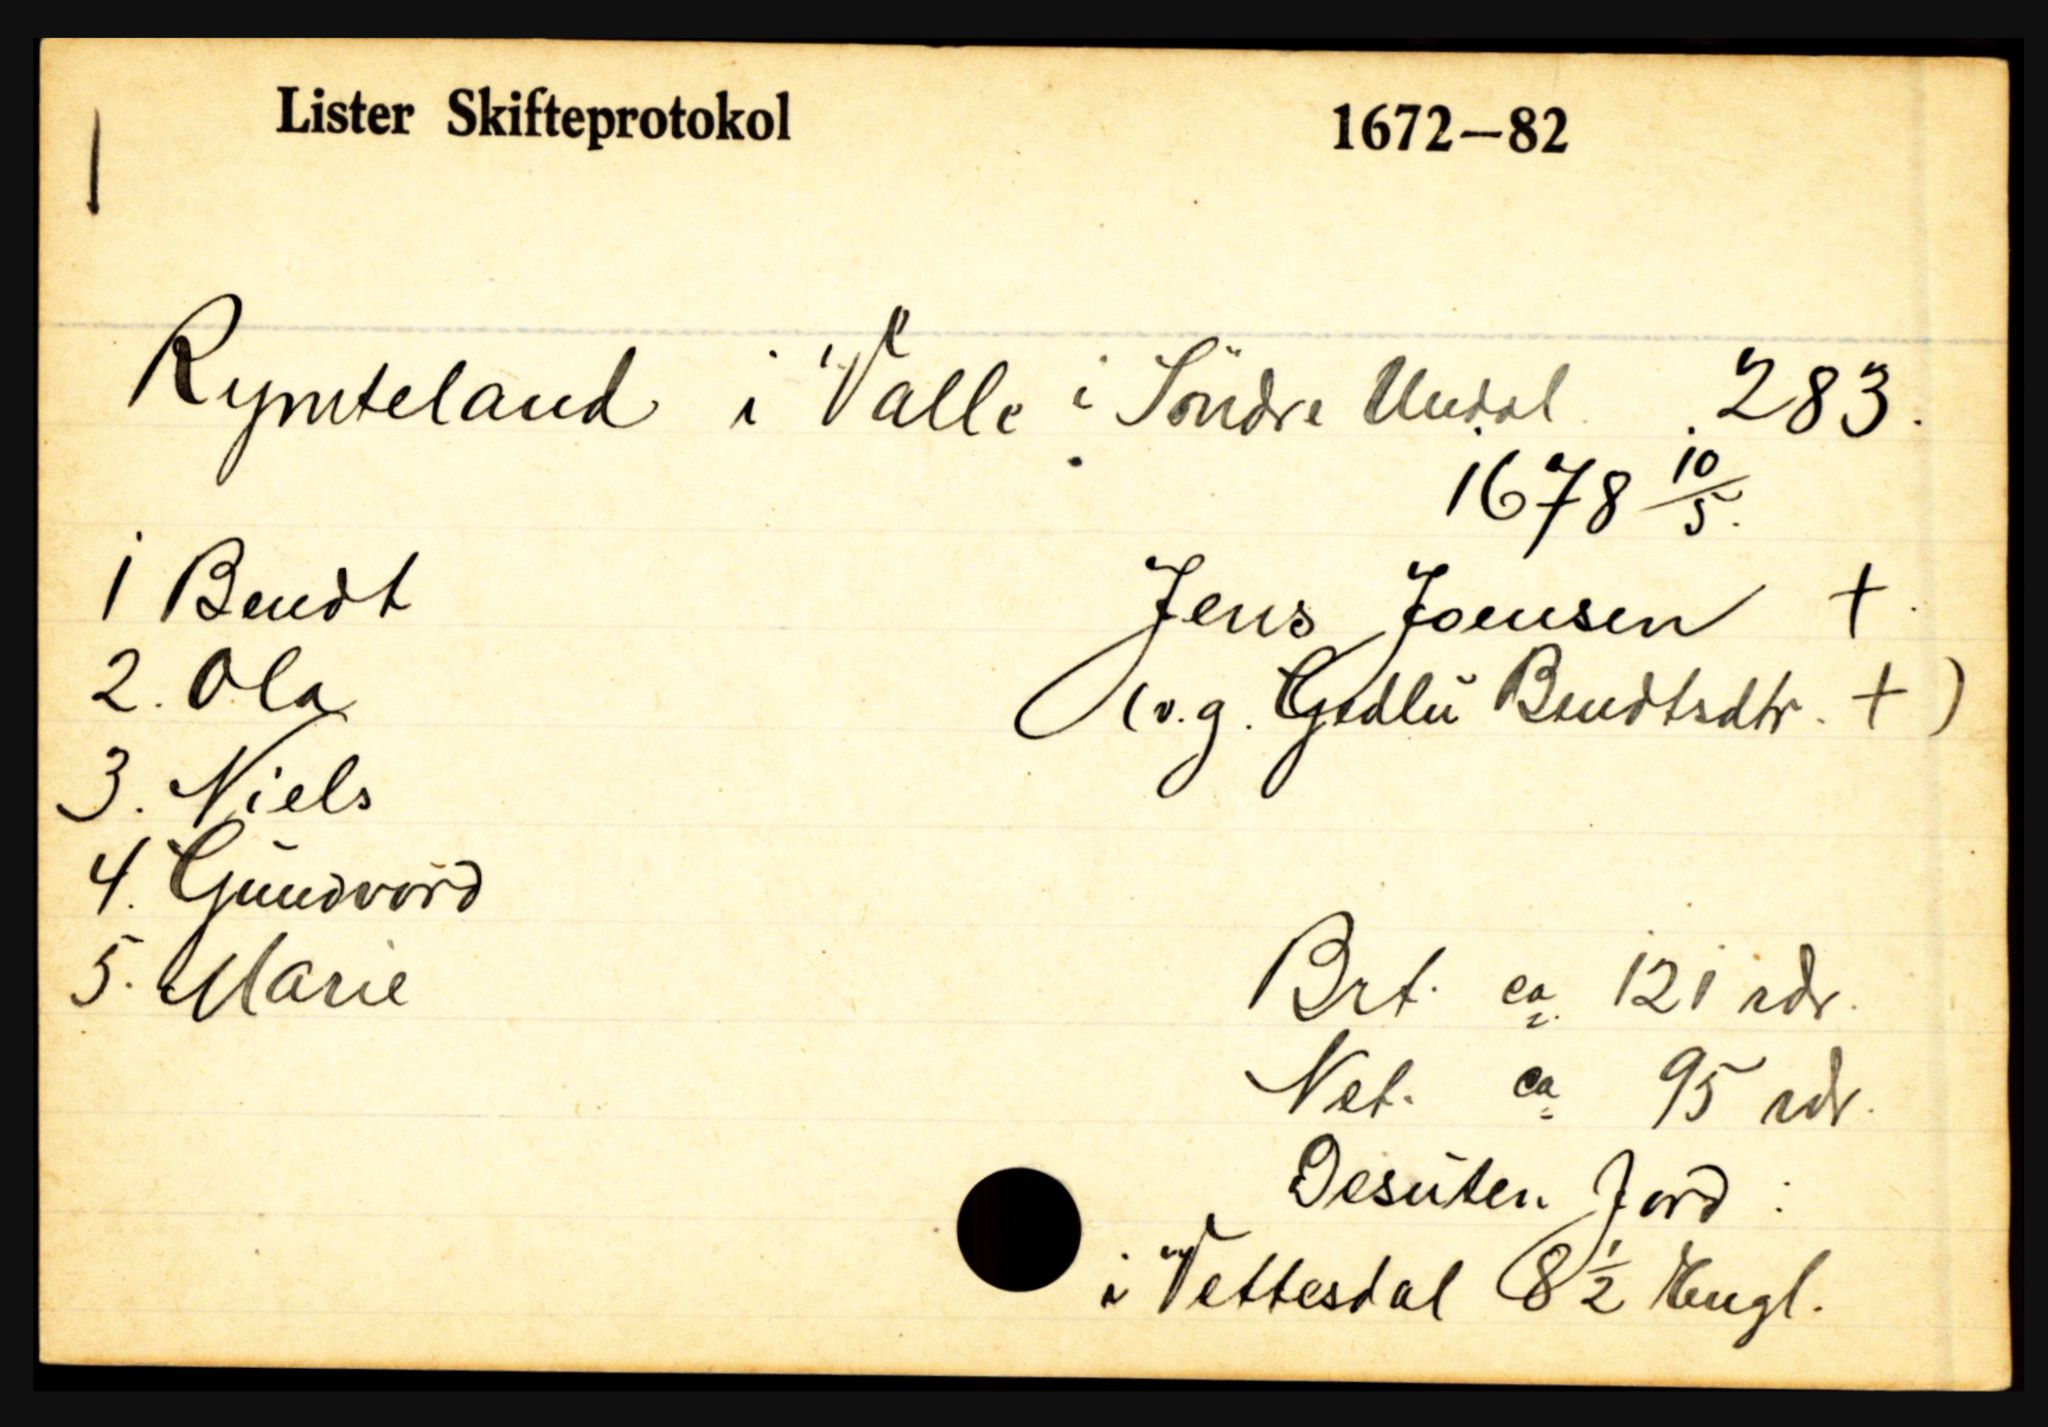 Lister Skifteprotokol 1672–82
Rymteland i Valle i Söndre Undal 283.
1678 10/5.
1 Bendt
Jens Joensen +
2. Ola
(v.g. Gødlu Bendtsdtr. +)
3. Niels
4. Gundvord
5. Marie
Brt. ca. 121 rdr.
Net. ca 95 rdr.
Desuten Jord :
i Vettesdal 8 1/2 Engl.